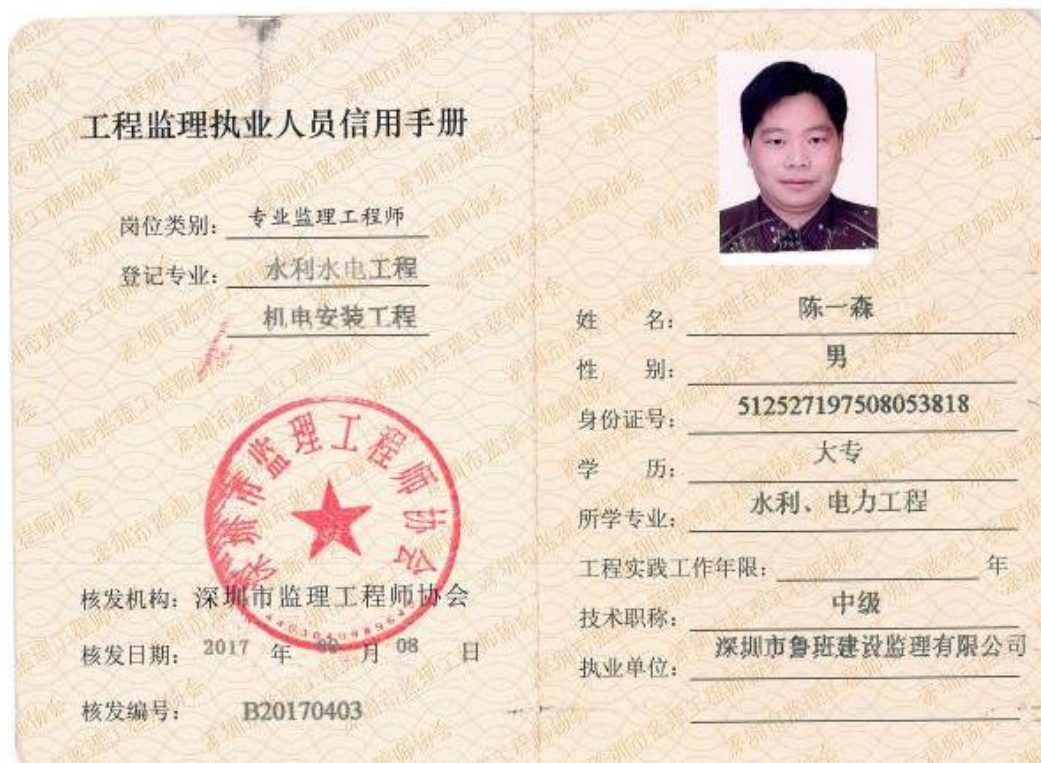 工程监理执业人员信用手册
岗位类别: 专业监理工程师
登记专业: 水利水电工程
机电安装工程
深圳市监理工程师协会
核发机构: 深圳市监理工程师协会
核发日期: 2017 年 月 08 日
核发编号: B20170403
姓 名: 陈一森
性 别: 男
身份证号: 512527197508053818
学 历: 大专
所学专业: 水利、电力工程
工程实践工作年限: 年
技术职称: 中级
执业单位: 深圳市鲁班建设监理有限公司